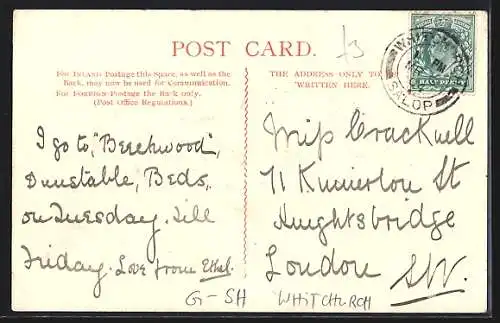 POST CARD.
/3
FOR INLAND Postage this Space, as well as the
Back, may now be used for Communication.
FOR FOREIGN Postage the Back only.
(Post Office Regulations.)
THE ADDRESS ONLY TO
WRITTEN HERE.
WHITCH
SALOP
HALFPENNY
I go to, "Beechwood",
Dunstable, Beds,
on Tuesday. Till
Friday. Love from Ethel.
Miss Cracknell
71 Kinnerton St
Knightsbridge
London
S.W.
G-SH
WHITCHURCH